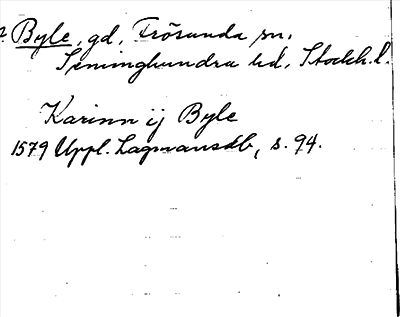 Byle, gd, Frösunda sn,
Seminghundra hd, Stockh. l.
Karinn ij Byle
1579 Uppl. Lagmansdb, s. 94.